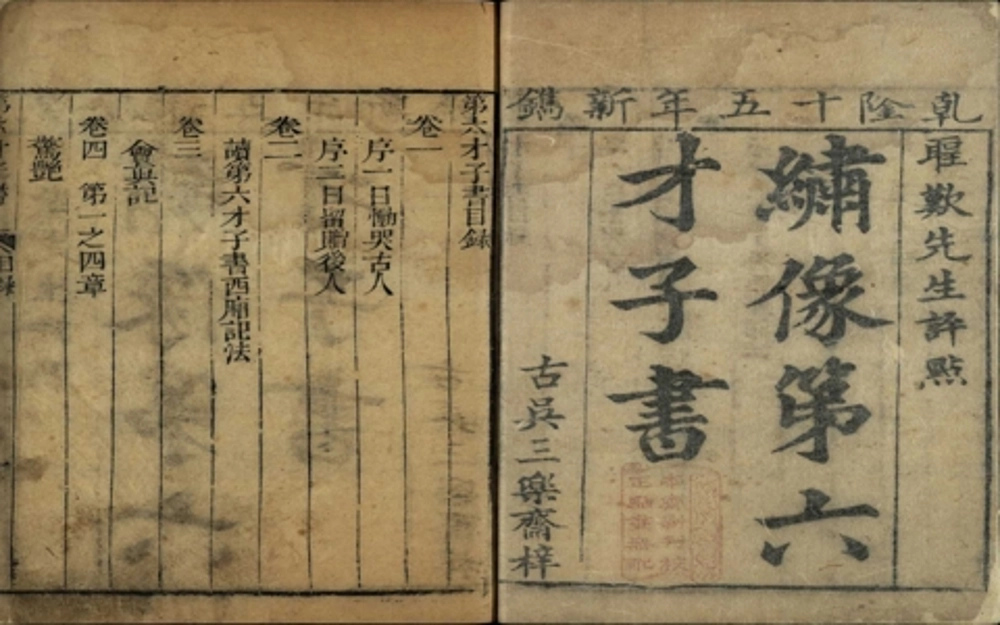 乹隆十五年新鐫
聖歎先生評點
繡像第六
才子書
古吳三樂齋梓
第六才子書目錄
卷一
序一曰慟哭古人
序二曰留贈後人
卷二
讀第六才子書西廂記法
卷三
會真記
卷四 第一之四章
驚艷